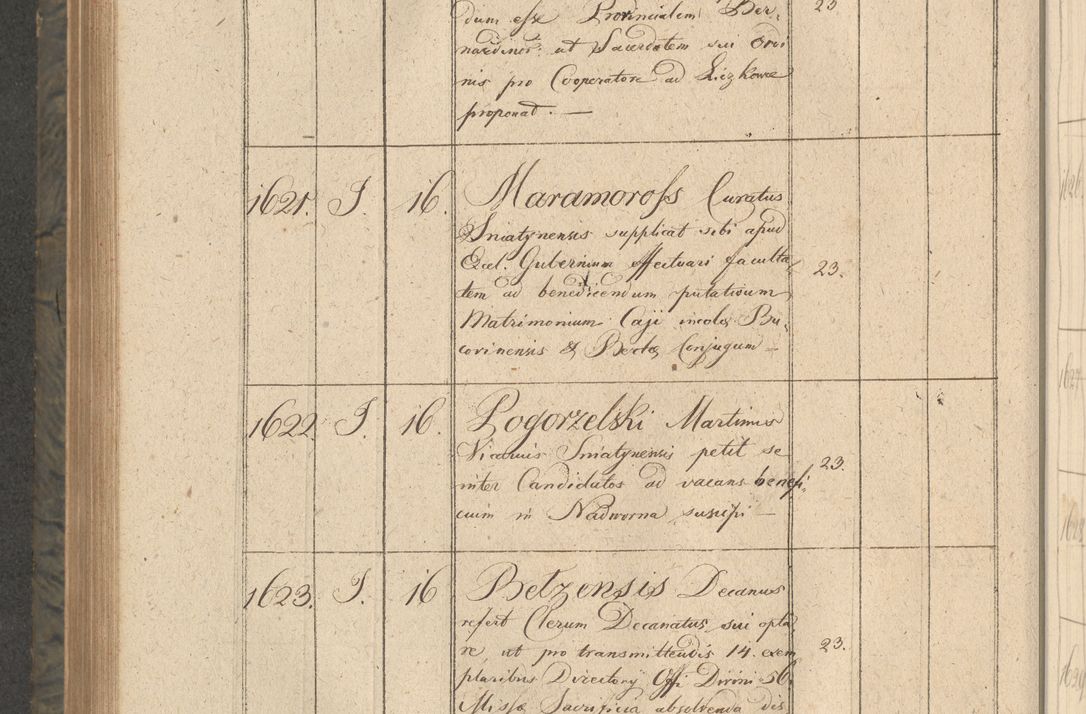 dum esse Provincialem Ber-
nardinor: ut Sacerdotem sui Ordi
nis pro Cooperatore ad Liczkowce
proponat. —
23
1621. J. 16. Maramoross Curatus
Sniatynensis supplicat sibi apud
Excel. Gubernium effectuari faculta-
tem ad benedicendum putativum
Matrimonium Caji incolæ Bu-
covinensis & Bertæ Conjugum —
23.
1622. J. 16. Pogorzelski Martinus
Vicarius Sniatynensis petit se
inter Candidatos ad vacans benefi-
cium in Nadworna suscipi —
23.
1623. J. 16 Betzensis Decanus
refert Clerum Decanatus sui opta-
re, ut pro transmittendis 14. exem
plaribus Directory Offi Divini 56.
Missæ Sacrificia absolvenda dis
23.